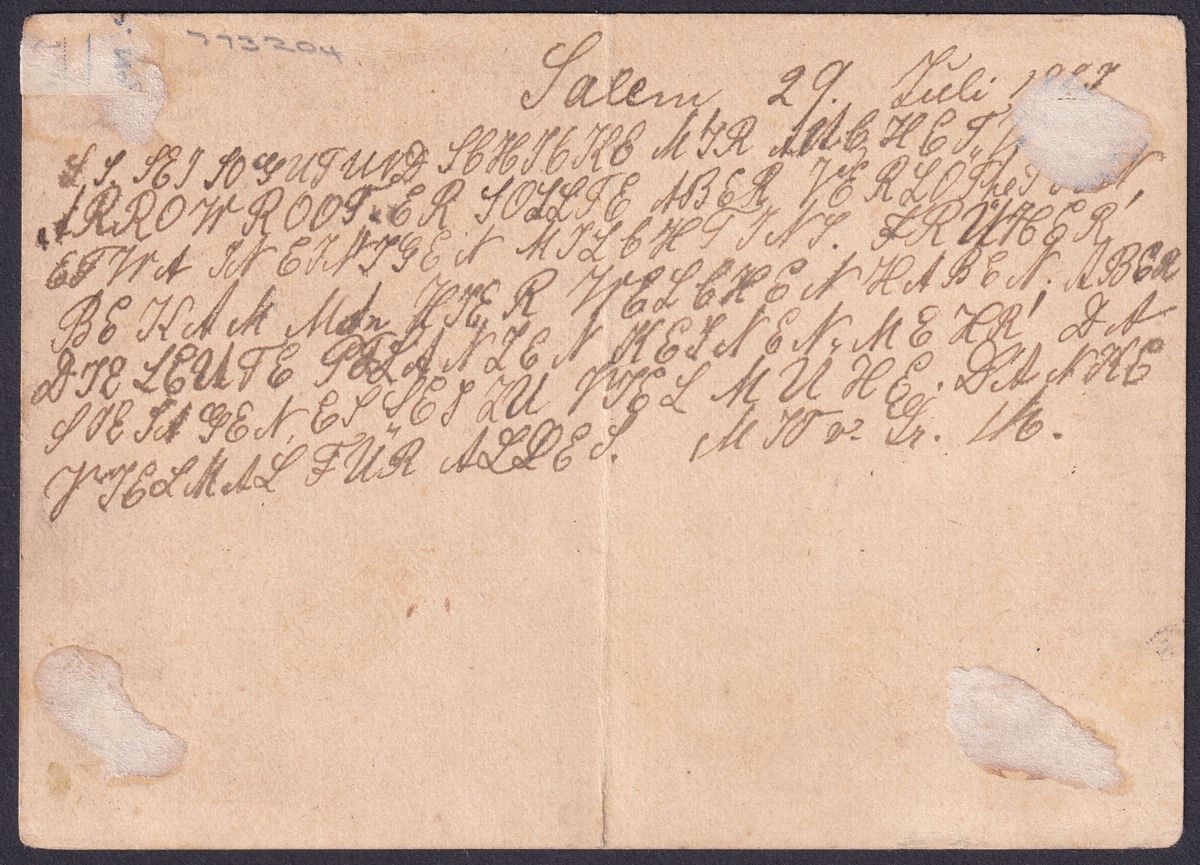 773204
Salem 29. Juli
SEI SO GUT UND SCHICKE MIR
ARROWROOT. ER SOLLTE ABER VERLÖTHET SEIN,
ETWA IN EINIGEN MILCHTINS. FRÜHER,
BEKAM MAN HIER WELCHEN HABEN. ABER
DIE LEUTE PFLANZEN KEINEN MEHR, DA
SIE SAGEN, ES SEI ZU VIEL MÜHE. DANKE
VIELMAL FÜR ALLES.